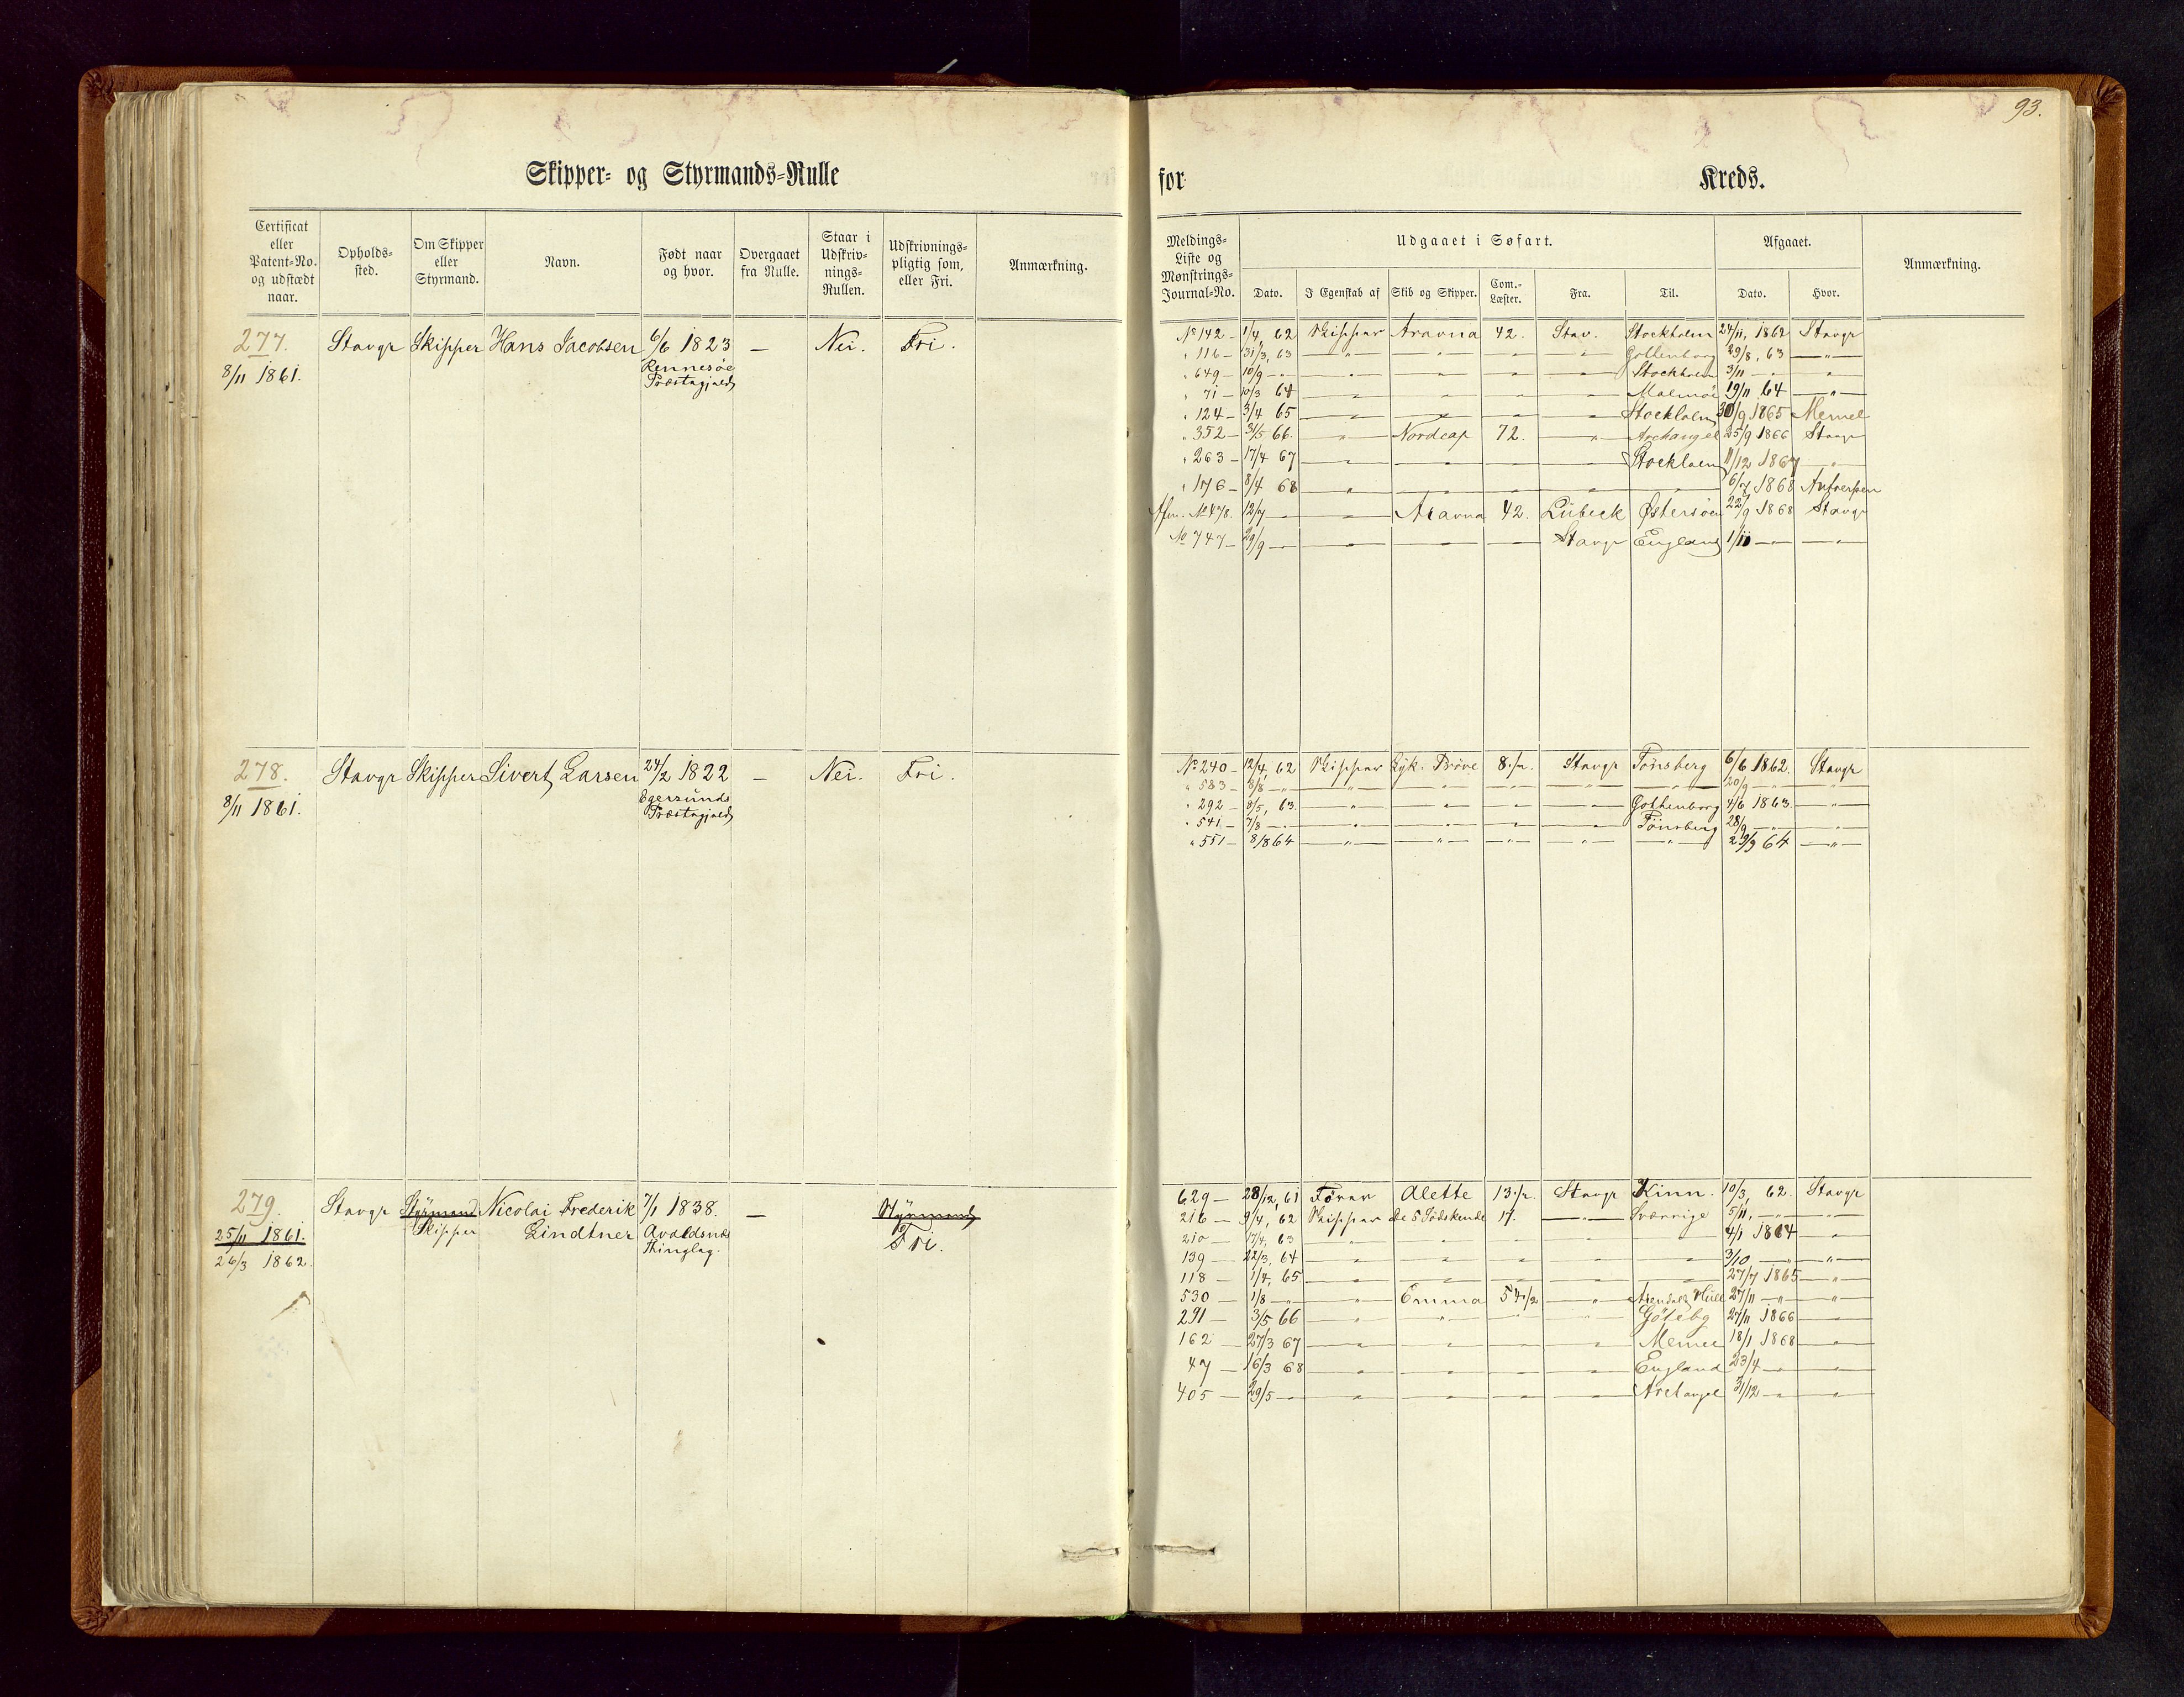 93.
Skipper- og Styrmands-Rulle
Certificat eller Patent-No. og udstædt naar. Opholds-sted. Om Skipper eller Styrmand. Navn. Født naar og hvor. Overgaaet fra Rulle. Staar i Udskriv-nings-Rullen. Udskrivnings-pligtig som, eller Fri. Anmærkning.
277. Stavgr Skipper Hans Jacobsen 6/6 1823 — Nei. Fri.
8/11 1861. Rennesøe
Præstegjæld
278. Stavgr Skipper Sivert Larsen 24/2 1822 — Nei. Fri.
8/11 1861. Egersunds
Præstegjæld
279. Stavgr Styrmand Nicolai Frederik 7/1 1838. — Styrmand
25/11 1861. Skipper Lindtner Avaldsnæs Fri.
26/3 1862. Thinglag.
for Kreds.
Meldings-Liste og Mønstrings-Journal-No. Udgaaet i Søfart. Afgaaet. Anmærkning.
Dato. I Egenskab af Skib og Skipper. Com.-Læster. Fra. Til. Dato. Hvor.
No 142 — 1/4, 62 Skipper Aravna 42. Stav. Stockholm 24/11, 1862 Stavgr
" 116 — 31/3, 63 — " — " — " — " Gottenborg 29/8, 63 — " —
" 649 — 10/9 — " — " — " — " — " Stockholm 3/11 — " — "
" 71 — 10/3 64 — " — " — " — " Malmøe 19/11 64 — " —
" 124 — 3/4 65 — " — " — " — " Stockholm 30/9 1865 Memel
" 352 — 31/5 66. — " — Nordcap 72. — " — Archangel 25/9 1866 Stavgr
" 263 — 17/4 67 — " — " — " — " Stockholm 11/12 1867 "
" 176 — 8/4 68 — " — " — " — " — " 6/7 1868 Antverpen
No 478. 12/7 — " — Aravna 42. Lübeck Østersøen 22/9 1868 Stavgr
No 747 — 29/9 — " — " — " Stavgr England 1/11 — " —
No 240 — 12/4, 62 Skipper Prøve 8 1/2. Stavgr Tønsberg 6/6 1862. Stavgr
" 583 — 8/8 — " — " — " — " — " — " 20/9 — " — "
" 292 — 8/5, 63. — " — " — " — " Gothenborg 4/6 1863. — "
" 541 — 7/8 — " — " — " — " — " Tönsberg 28/9 — " — "
" 551 — 8/8 64 — " — " — " — " — " — 29/9 64 — " —
629 — 28/12, 61 Fører Alette 13 1/2. Stavgr Kinn. 10/3, 62. Stavgr
216 — 9/4, 62 Skipper de 5 Sødskende 17. — " — Sverrige 5/11, — " — "
210 — 17/4, 63 — " — " — " — " — " 4/1 1864 — "
139 — 22/3, 64 — " — " — " — " — " 3/10 — " — " —
118 — 1/4, 65 — " — " — " — " — " 27/7 1865 — " —
530 — 1/8 — " — " Emma 54 1/2 — " Arendal, Hull 27/11 — " — "
291 — 3/5 66 — " — " — " — " Götebg 27/11 1866 — " —
162 — 27/3 67 — " — " — " — " Memel 18/1 1868 — " —
47 — 16/3 68 — " — " — " — " England 23/4 — " — "
405 — 29/5 — " — " — " — " — " Archangel 31/12 — " — "